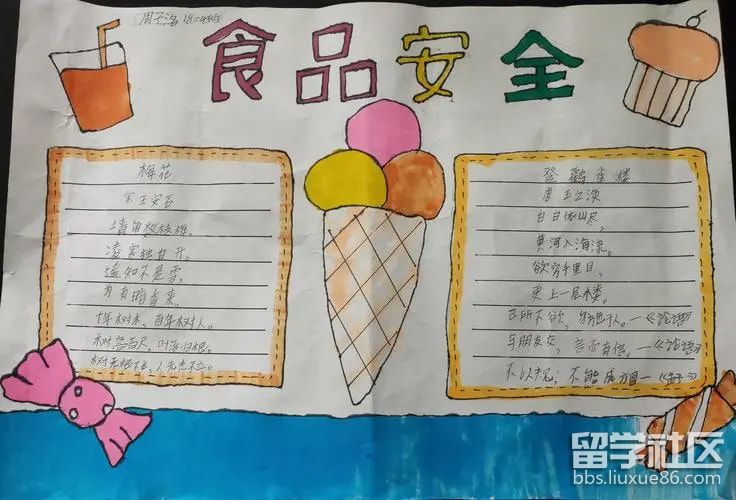 周子洛 1804班
食品安全
梅花
宋王安石
墙角数枝梅,
凌寒独自开。
遥知不是雪,
为有暗香来。
十年树木,百年树人。
树高百尺 叶落归根。
树无根不长,人无志不立。
登鹳雀楼
唐 王之涣
白日依山尽,
黄河入海流。
欲穷千里目,
更上一层楼。
己所不欲,勿施于人。—《论语》
与朋友交,言而有信。—《论语》
不以规矩,不能成方圆—《孟子》
留学社区
bbs.liuxue86.com